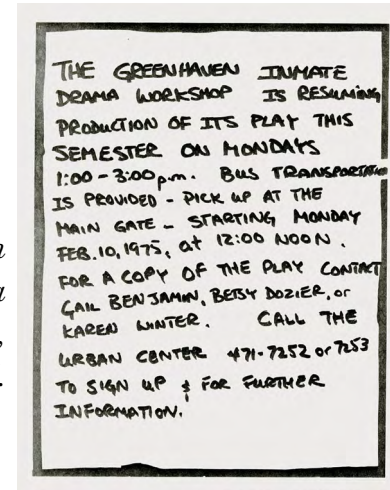 THE GREENHAVEN INMATE
DRAMA WORKSHOP IS RESUMING
PRODUCTION OF ITS PLAY THIS
SEMESTER ON MONDAYS
1:00 - 3:00 p.m. BUS TRANSPORTATION
IS PROVIDED - PICK UP AT THE
MAIN GATE - STARTING MONDAY
FEB. 10, 1975, at 12:00 NOON.
FOR A COPY OF THE PLAY CONTACT
GAIL BENJAMIN, BETSY DOZIER, or
KAREN WINTER. CALL THE
URBAN CENTER 471-7252 or 7253
TO SIGN UP & FOR FURTHER
INFORMATION.